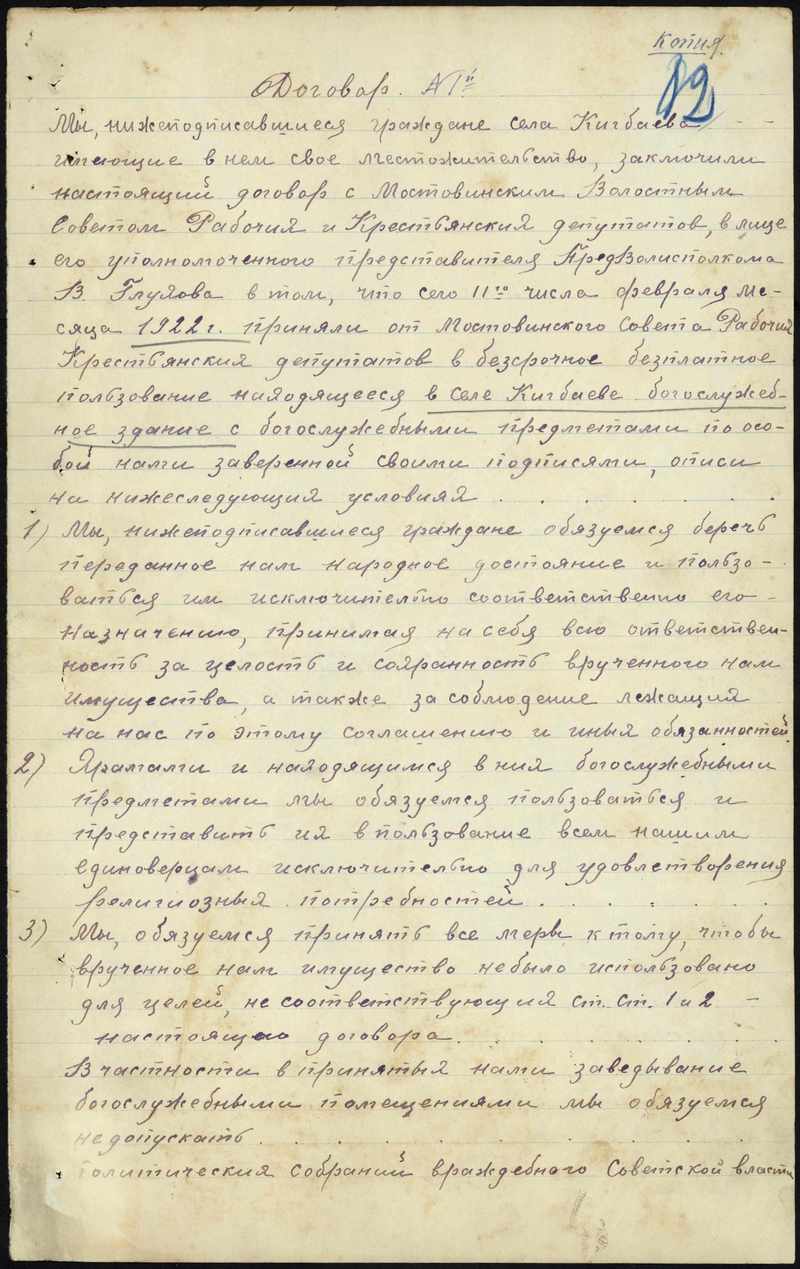 Копия.
12
Договор. № 1й
Мы, нижеподписавшиеся граждане села Кигбаева - -
имеющие в нем свое местожительство, заключили
настоящий договор с Мостовинским Волостным
Советом Рабочих и Крестьянских депутатов, в лице
его уполномоченного представителя ПредВолисполкома
В. Глухова в том, что сего 11го числа февраля ме-
сяца 1922 г. приняли от Мостовинского Совета Рабочих
Крестьянских депутатов в безсрочное безплатное
пользование находящееся в селе Кигбаеве богослужеб-
ное здание с богослужебными предметами по осо-
бой нами заверенной своими подписями, описи
на нижеследующих условиях . . . . . . .
1) Мы, нижеподписавшиеся граждане обязуемся беречь
переданное нам народное достояние и пользо-
ваться им исключительно соответственно его -
назначению, принимая на себя всю ответствен-
ность за целость и сохранность врученного нам
имущества, а также за соблюдение лежащих
на нас по этому соглашению и иных обязанностей
2) Храмами и находящимся в них богослужебными
предметами мы обязуемся пользоваться и
представить их в пользование всем нашим
единоверцам исключительно для удовлетворения
религиозных потребностей . . . . . .
3) Мы, обязуемся принять все меры к тому, чтобы
врученное нам имущество небыло использовано
для целей, не соответствующих ст. ст. 1 и 2 -
настоящаго договора. . . . . . . .
В частности в принятых нами заведывание
богослужебными помещениями мы обязуемся
недопускать . . . . . . . . .
политических собраний враждебного Советской власти